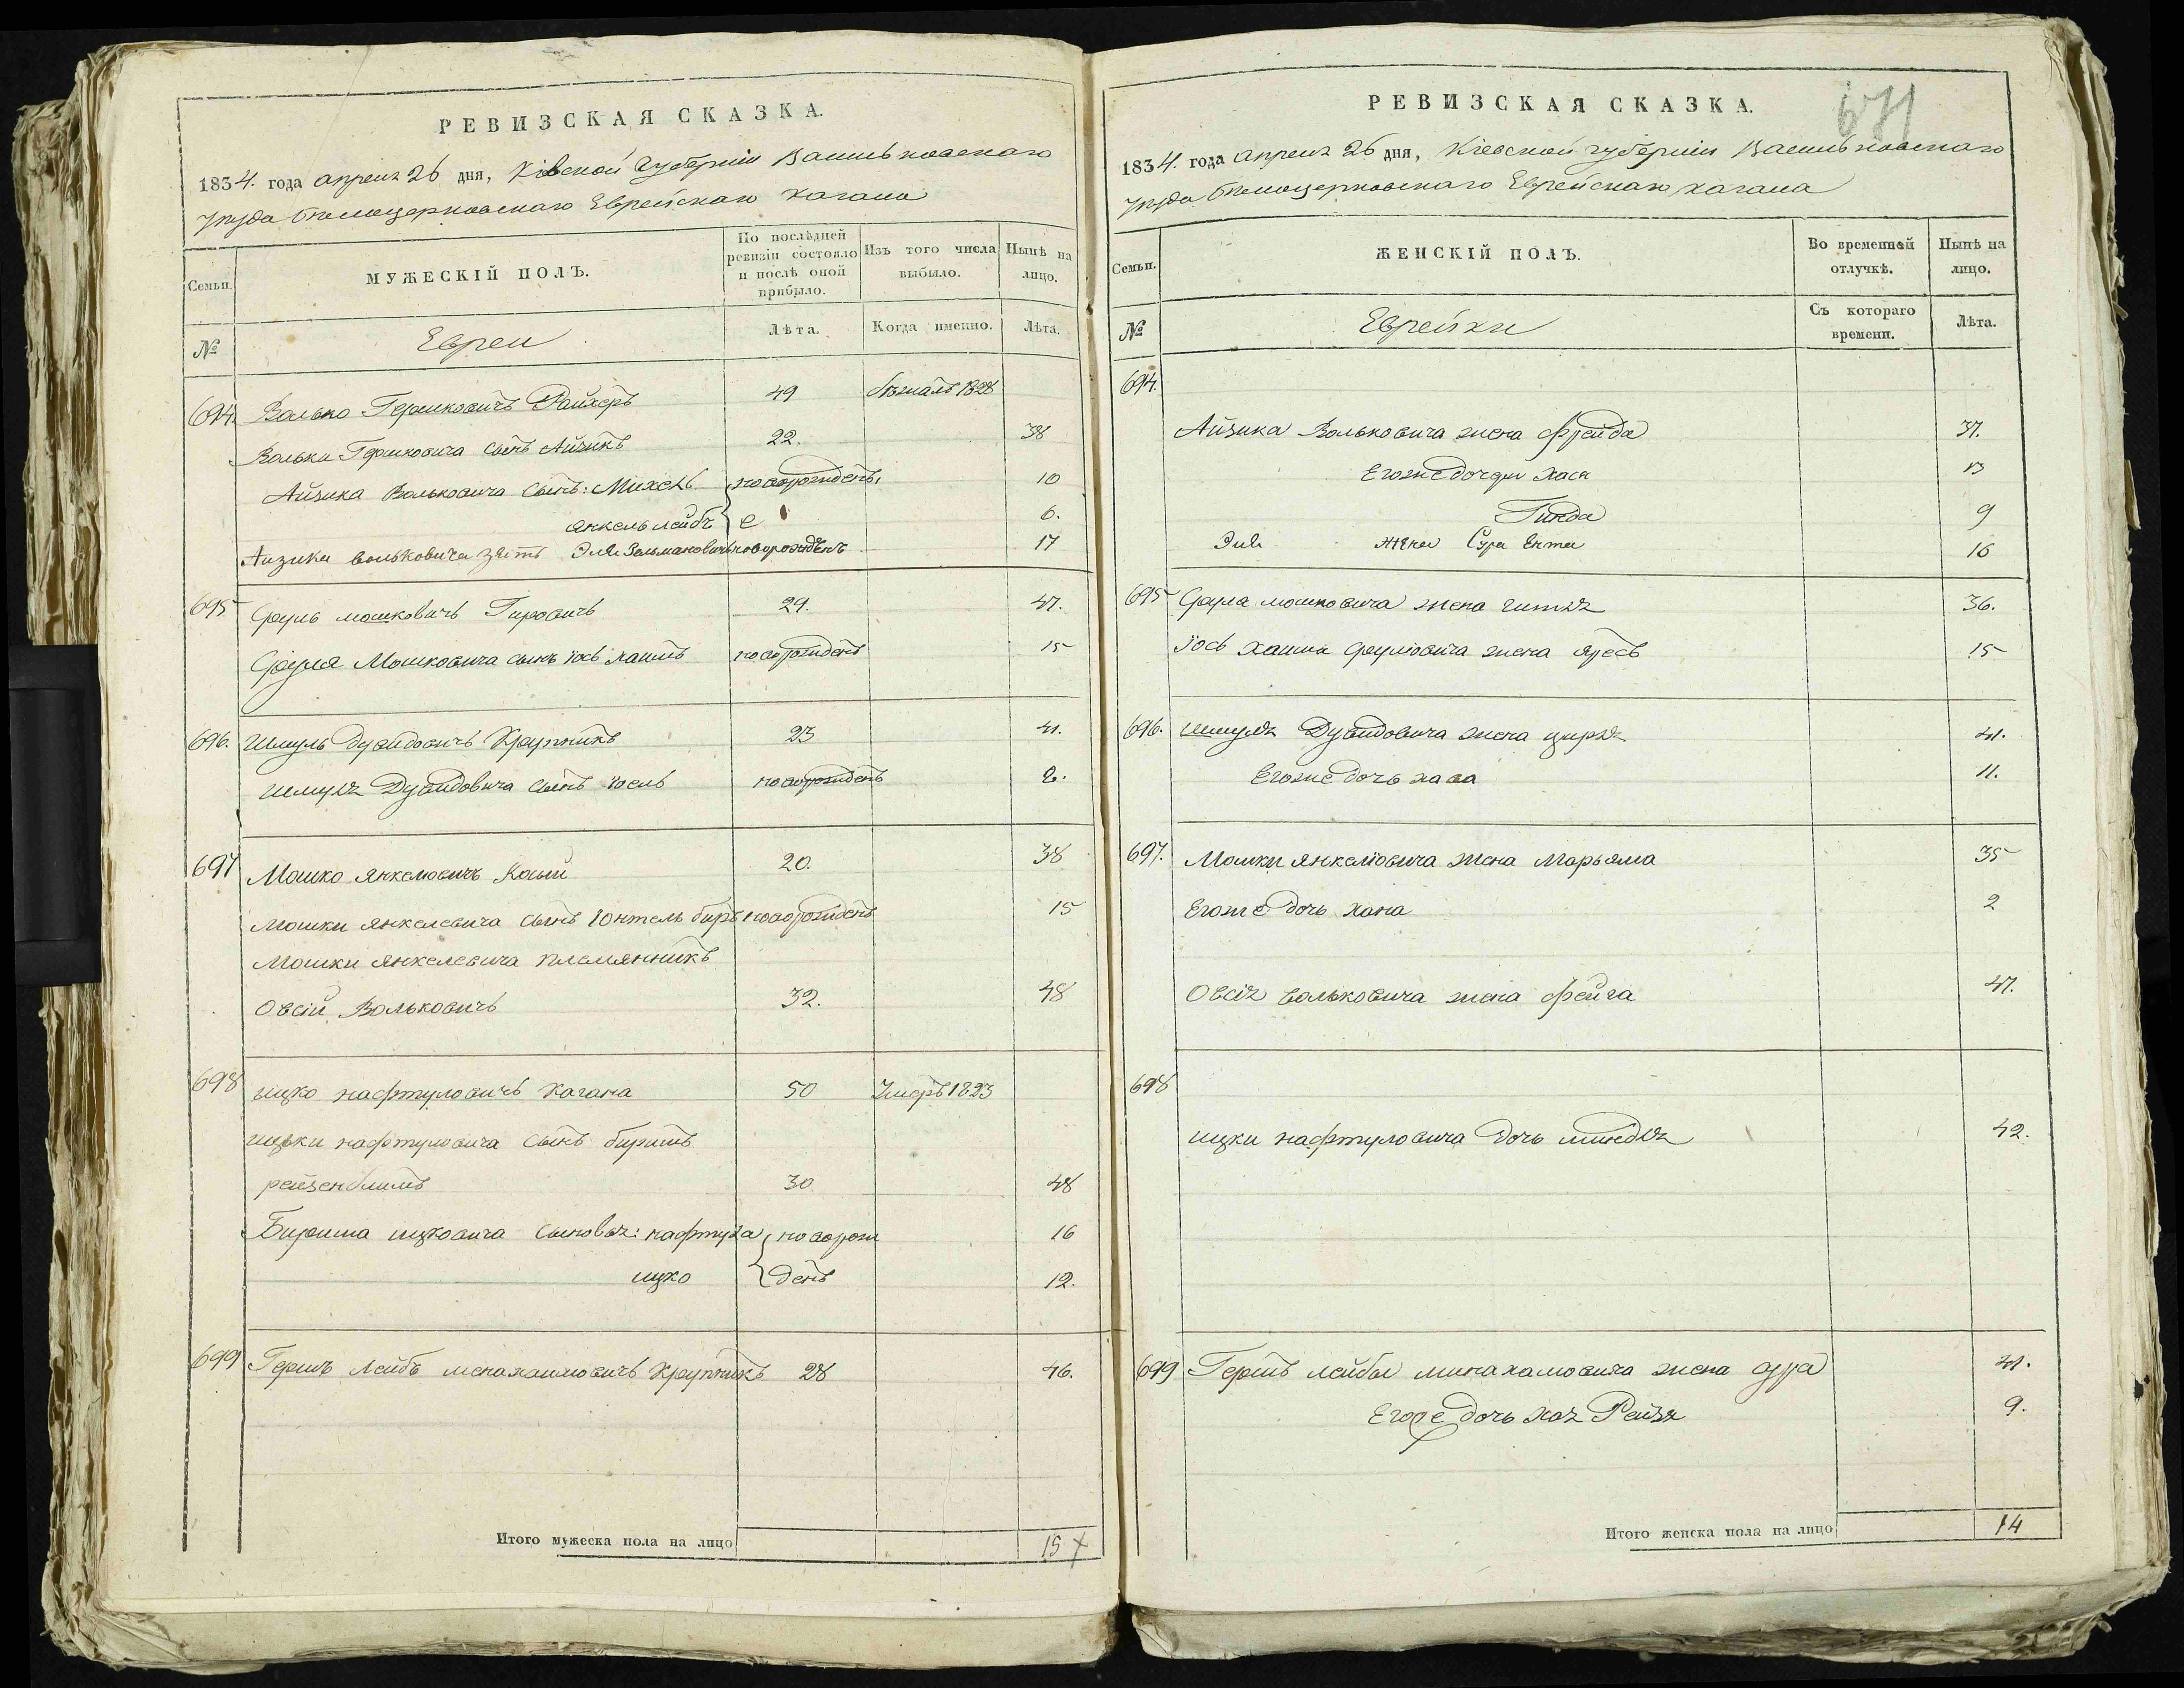 РЕВИЗСКАЯ СКАЗКА.
1834. года апреля 26 дня, Кіевской Губерніи Васильковскаго
уезда Белоцерковскаго Еврейскаго кагала
Семьи.
МУЖЕСКІЙ ПОЛЪ.
По послѣдней ревизіи состояло и послѣ оной прибыло.
Изъ того числа выбыло.
Нынѣ на лицо.
№
Евреи
Лѣта.
Когда именно.
Лѣта.
694. Волько Гершковичъ Райхеръ 49 бежалъ 1828
Вольки Гершковича сынъ Айзикъ 22. 38
Айзика Вольковича сынъ: Михель новорожденъ, 10
Янкель лейбъ е 6.
Айзика Вольковича зять Эля Зельмановичъ новорожденъ 17
695 Сруль мошковичъ Гировичъ 29. 47.
Сруля Мошковича сынъ іось хаимъ новорожденъ 15
696. Шмуль Дувидовичъ Крупникъ 23 41.
Шмуля Дувидовича сынъ іосль новорожденъ 2.
697 Мошко Янкелювичъ Косый 20. 38
Мошки Янкелевича сынъ Іонтель биръ новорожденъ 15
Мошки Янкелевича племянникъ
Овсій Вольковичъ 32. 48
698 ицко нафтуловичъ Кагана 50 Умеръ 1823
ицьки нафтуловича сынъ биришъ
рейзенблитъ 30 48
Бириша ицковича сыновья: нафтула новорож 16
ицко денъ 12.
699 Гершъ Лейбъ менахаимовичъ Крупникъ 28 46.
Итого мужеска пола на лицо 15
РЕВИЗСКАЯ СКАЗКА.
671
1834. года апреля 26 дня, Кіевской губерніи Васильковскаго
уезда Белоцерковскаго Еврейскаго кагала
Семьи.
ЖЕНСКІЙ ПОЛЪ.
Во временной отлучкѣ.
Нынѣ на лицо.
№
Еврейки
Съ котораго времени.
Лѣта.
694.
Айзика Вольковича жена фрейда 37.
Егоже дочери Хася 13
Гинда 9
Эли жена Сура Ента 16
695 Сруля мошковича жена гитля 36.
іось хаима срулювича жена 15
696. Шмуля Дувидовича жена цирля 41.
Егоже дочь хава 11.
697. Мошки Янкелювича жена Марьяма 35
Егоже дочь хана 2
Овсія вольковича жена фейга 47.
698
ицки нафтуловича дочь миндля 42.
699 Гершъ лейбы минахамовича жена сура 41.
Егоже дочь хая Рейзя 9.
Итого женска пола на лицо 14